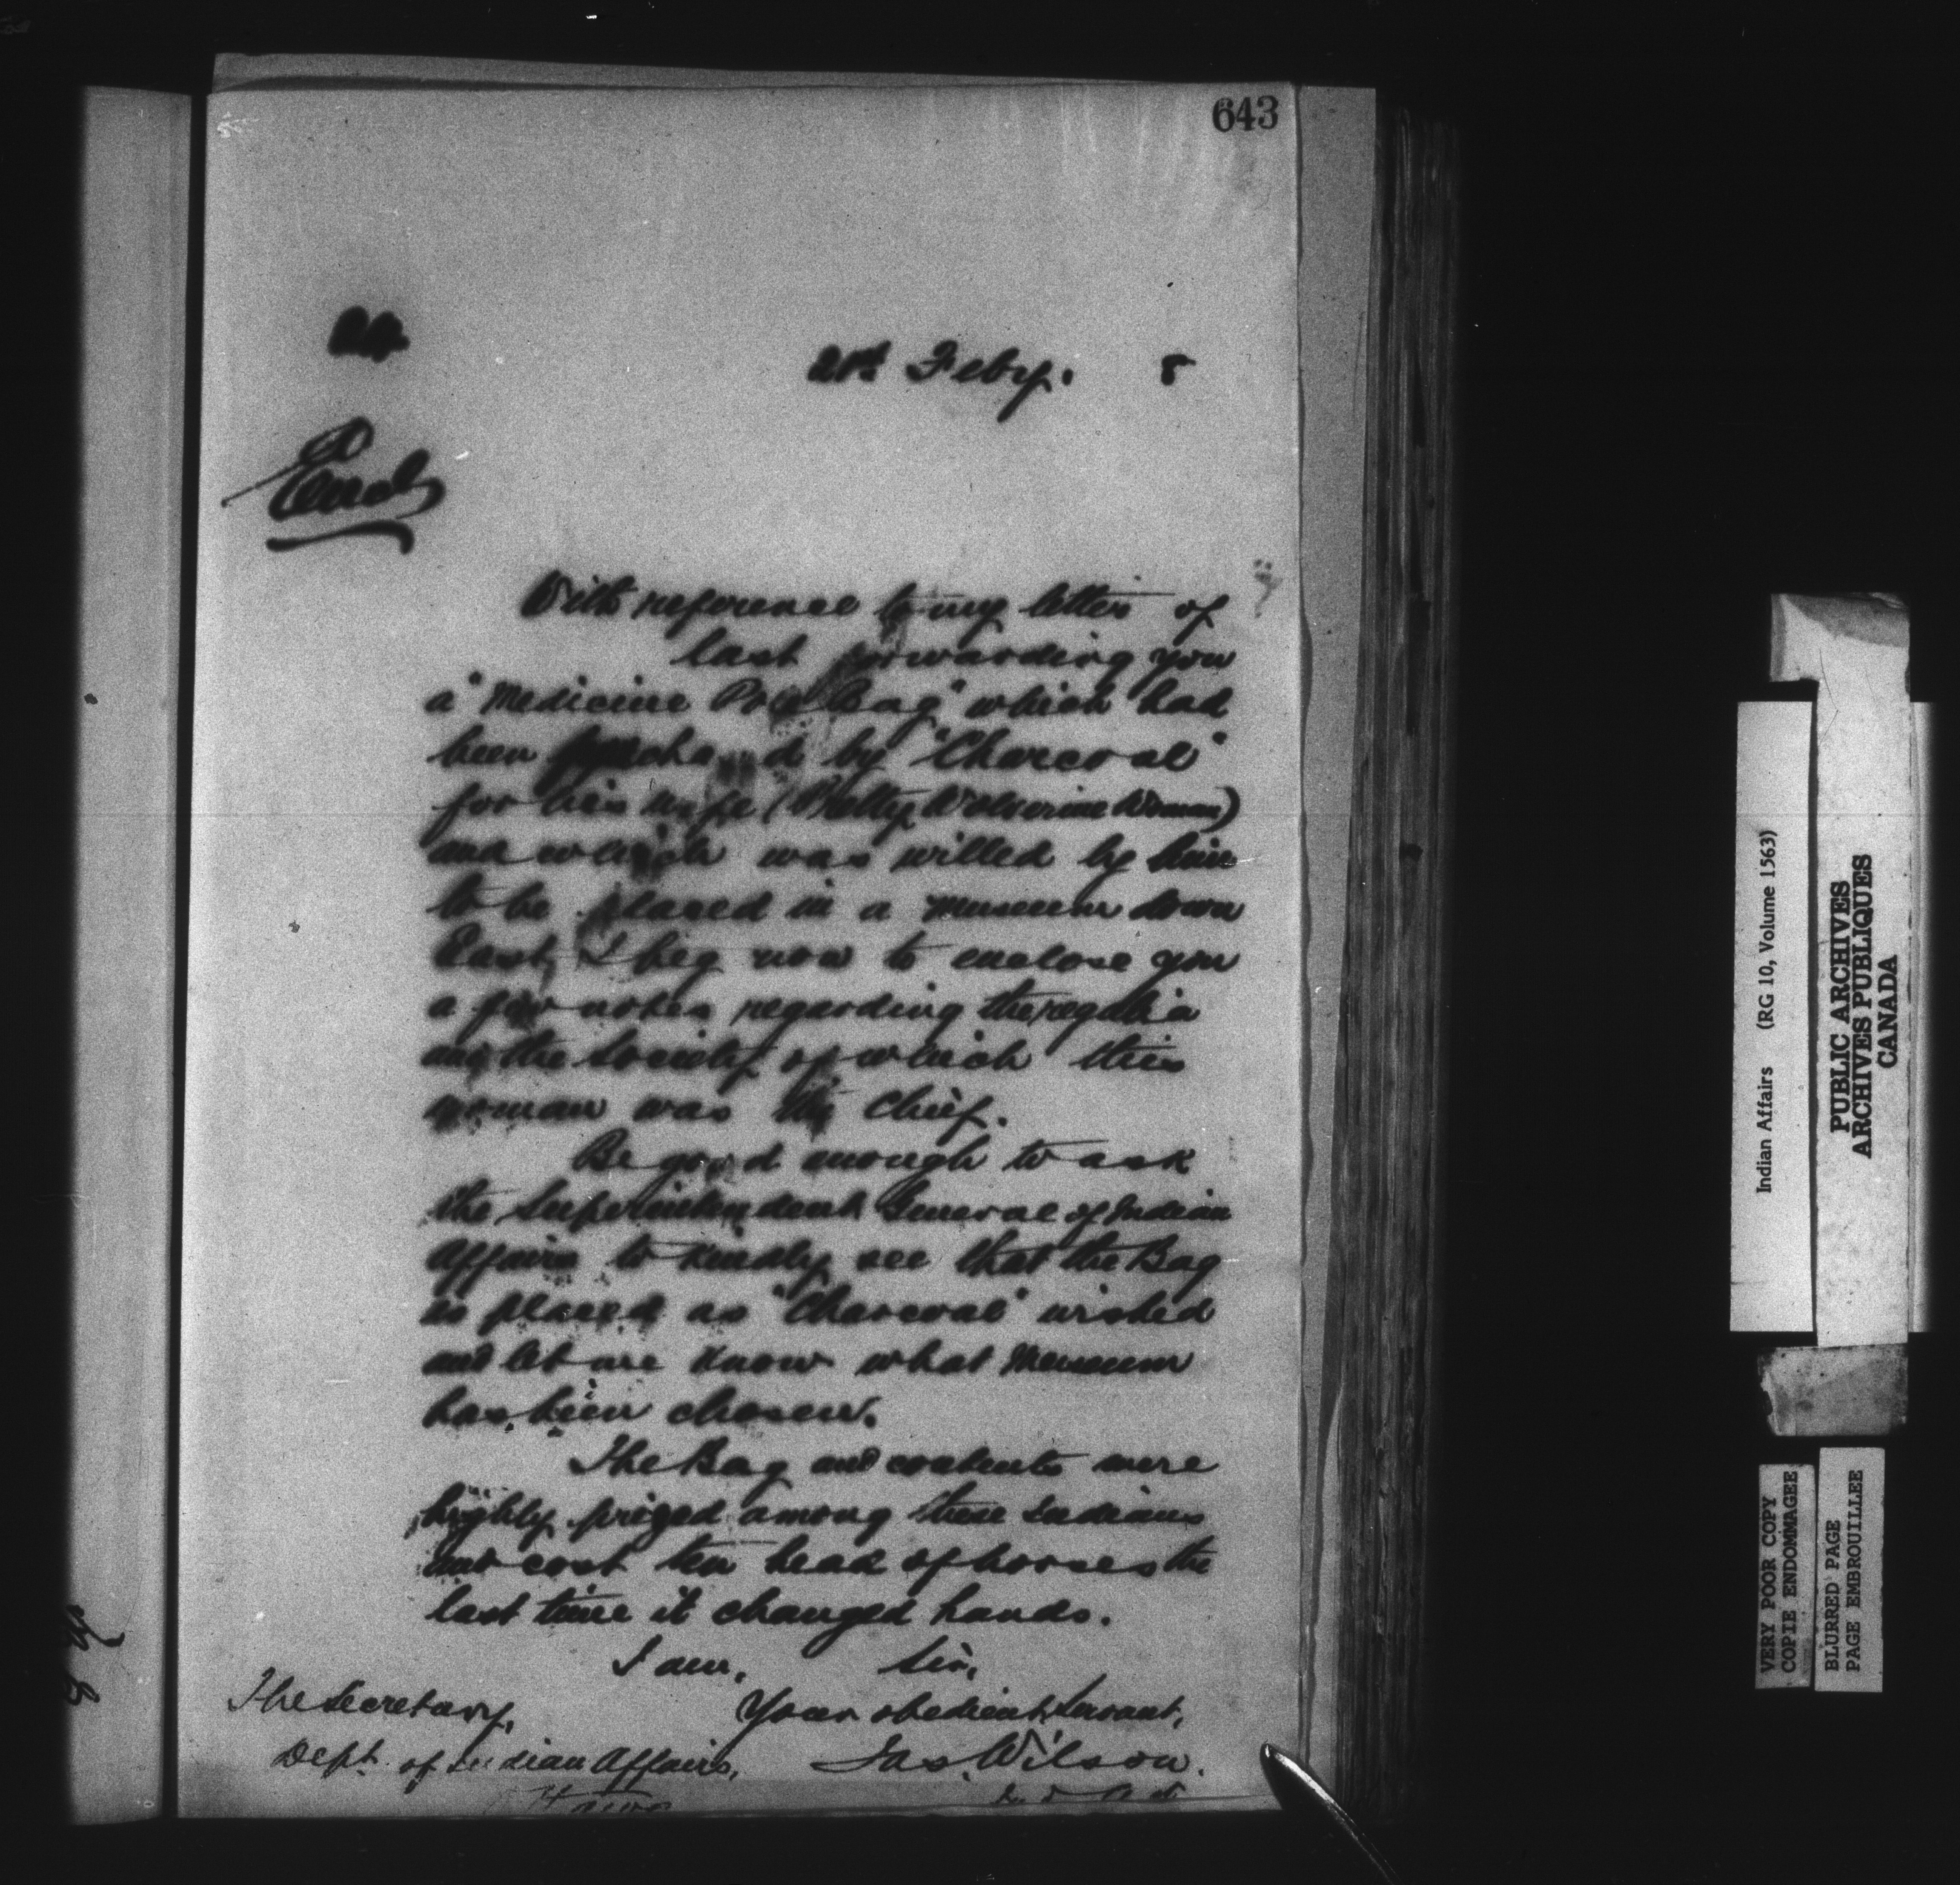 643
21st Feby. 8
Encl
With reference to my letter of
last forwarding you
a "Medicine Pipe Bag" which had
been purchased by "Charcoal"
for his wife (Pretty Wolverine Woman)
and which was willed by him
to be placed in a museum down
East, I beg now to enclose you
a few notes regarding the regalia
and the Society of which this
woman was the chief.
Be good enough to ask
the Superintendent General of Indian
Affairs to kindly see that the Bag
is placed as "Charcoal" wished
and let me know what Museum
has been chosen.
The Bag and contents were
highly prized among these Indians
and cost ten head of horses the
last time it changed hands.
I am, Sir,
Your obedient Servant,
Jas. Wilson.
The Secretary,
Dept. of Indian Affairs,
Indian Affairs (RG 10, Volume 1563)
PUBLIC ARCHIVES
ARCHIVES PUBLIQUES
CANADA
VERY POOR COPY
COPIE ENDOMMAGEE
BLURRED PAGE
PAGE EMBROUILLEE